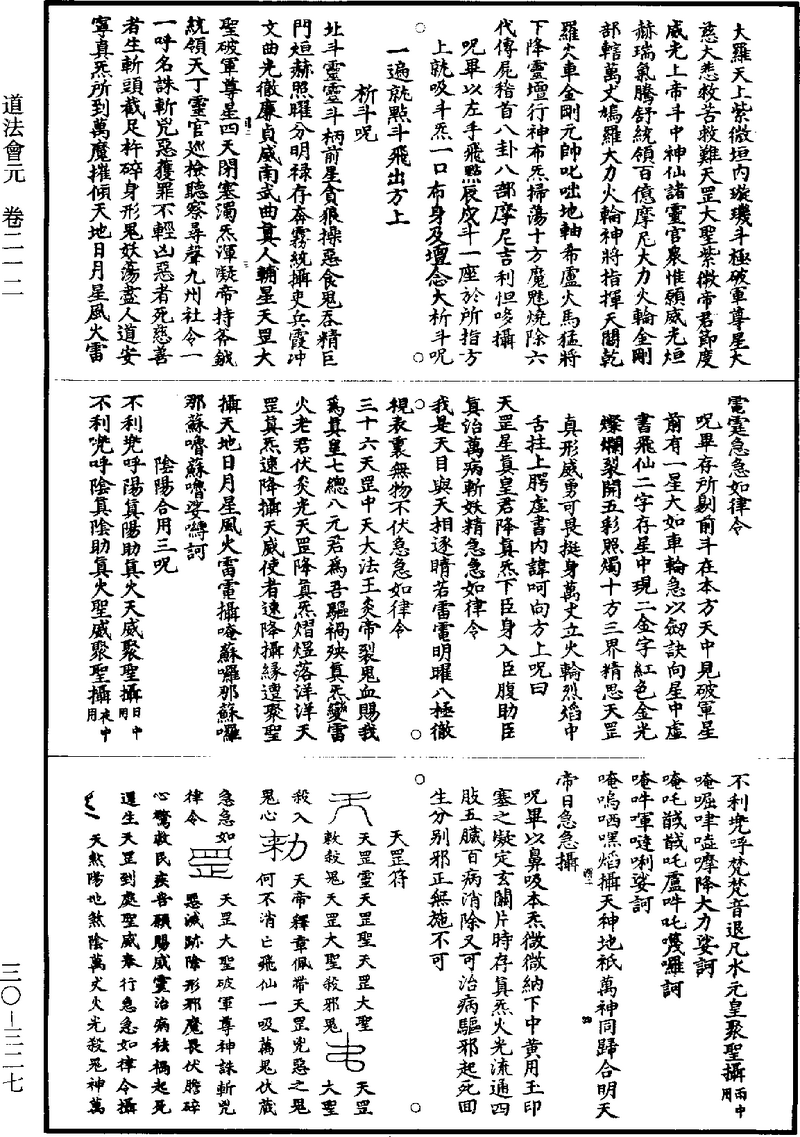 道法會元 卷二一二
三〇—三二七
大羅天上紫微垣內璇璣斗極破軍尊星大
慈大悲救苦救難天罡大聖紫微帝君節度
威光上帝斗中神仙諸靈官衆惟願威光烜
赫瑞氣騰舒統領百億摩尼大力火輪金剛
部轄萬丈鳩羅大力火輪神將指揮天關乾
羅火車金剛元帥叱咄地軸希盧火馬猛將
下降靈壇行神布炁掃蕩十方魔魅燒除六
代傳屍稽首八卦八部摩尼吉利怛哆攝
呪畢以左手飛點辰戌斗一座於所指方
上就吸斗炁一口布身及壇念大析斗呪
一遍就點斗飛出方上
析斗呪
北斗靈靈斗柄前星貪狼操惡食鬼吞精巨
門烜赫照曜分明祿存奔霧統攝吏兵霞沖
文曲光徹廉貞威南武曲真人輔星天罡大
聖破軍尊星四天閉塞濁炁渾凝帝持斧鉞
統領天丁靈官巡檢聽察尋聲九州社令一
一呼名誅斬兇惡獲罪不輕凶惡者死慈善
者生斬頭截足杵碎身形鬼妖蕩盡人道安
寧真炁所到萬魔摧傾天地日月星風火雷
電霆急急如律令
呪畢存所剔前斗在本方天中見破軍星
前有一星大如車輪急以劒訣向星中虛
書飛仙二字存星中現二金字紅色金光
燦爛裂開五彩照燭十方三界精思天罡
真形威勇可畏挺身萬丈立火輪烈焰中
舌拄上腭虛書內諱呵向方上呪曰
天罡星真皇君降真炁下臣身入臣腹助臣
真治萬病斬妖精急急如律令
我是天目與天相逐睛若雷電明曜八極徹
視表裏無物不伏急急如律令
三十六天罡中天大法王炎帝裂鬼血賜我
爲真皇七總八元君爲吾驅禍殃真炁變雷
火老君伏炎光天罡降真炁熠煜落洋洋天
罡真炁速降攝天威使者速降攝緣遭聚聖
攝天地日月星風火雷電攝唵蘇囉那蘇囉
那蘇嚕蘇嚕娑嚩訶
陰陽合用三呪
不利㘓呼陽真陽助真火天威聚聖攝日中用
不利㘓呼陰真陰助真火聖威聚聖攝夜中用
不利㘓呼梵梵音退凡水元皇聚聖攝雨中用
唵囉㖀嗑嚤降大力娑訶
唵吒戠戠吒盧吽吒篾囉訶
唵吽㖷噠唎娑訶
唵嗚哂嘿焰攝天神地祇萬神同歸合明天
帝日急急攝
呪畢以鼻吸本炁微微納下中黄用玉印
塞之凝定玄關片時存真炁火光流通四
肢五臟百病消除又可治病驅邪起死回
生分别邪正無施不可
天罡符
天罡靈天罡聖天罡大聖 天罡
敕殺鬼天罡大聖殺邪鬼 大聖
殺入 天帝釋章佩帶天罡兇惡之鬼
鬼心 何不消亡飛仙一吸萬鬼伏藏
急急如 天罡大聖破軍尊神誅斬兇
律令 惡滅跡除形邪魔畏伏膽碎
心驚救民疾苦願賜威靈治病祛禍起死
還生天罡到處聖威奉行急急如律令攝
天煞陽地煞陰萬丈火光殺鬼神萬